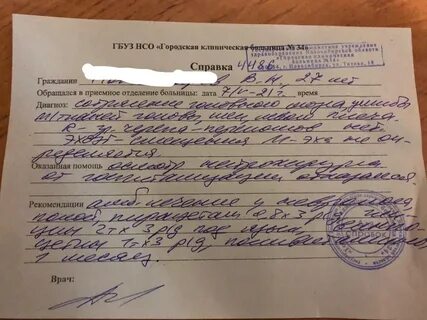 ГБУЗ НСО «Городская клиническая больница № 34»
Справка 4486
Гражданин В.И, 27 лет
Обращался в приемное отделение больницы: дата 7/V-21г время
Диагноз: сотрясение головного мозга, ушибы
м/тканей головы, шеи, левого плеча
R-гр. черепа - переломов нет
ЭХОЭГ - смещения М-эха не оп-
ределяется
Оказанная помощь осмотр нейрохирурга
от госпитализации отказался
Рекомендации амб. лечение у невролога
покой, пирацетам 0,8х3 р/д, глицин
2т х 3 р/д под язык,
1т х 3 р/д,
1 месяц.
Врач: